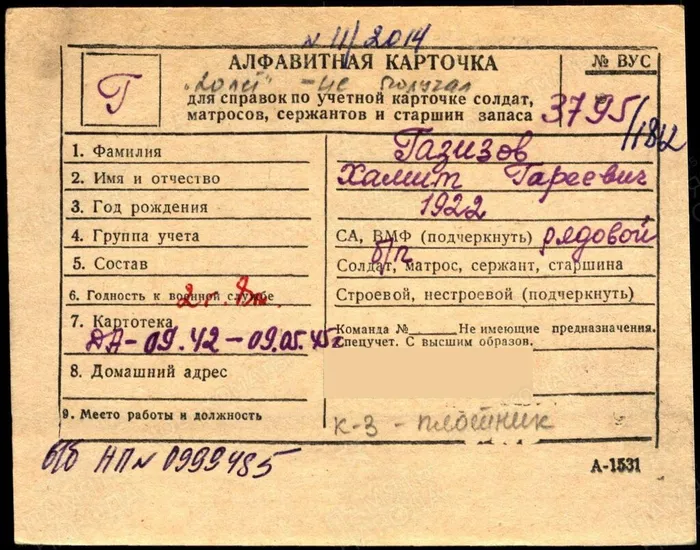 N 11/2014
Г
АЛФАВИТНАЯ КАРТОЧКА
№ ВУС
-не получал
для справок по учетной карточке солдат,
матросов, сержантов и старшин запаса
3795/1812
1. Фамилия
Газизов
2. Имя и отчество
Хамит Гареевич
3. Год рождения
1922
4. Группа учета
СА, ВМФ (подчеркнуть) рядовой
5. Состав
б/п
Солдат, матрос, сержант, старшина
6. Годность к военной службе
Строевой, нестроевой (подчеркнуть)
7. Картотека
ДА-09.42-09.05.45г
Команда № Не имеющие предназначения.
Спецучет. С высшим образов.
8. Домашний адрес
9. Место работы и должность
К-3 - плотник
б/б НП N 0999485
А-1531